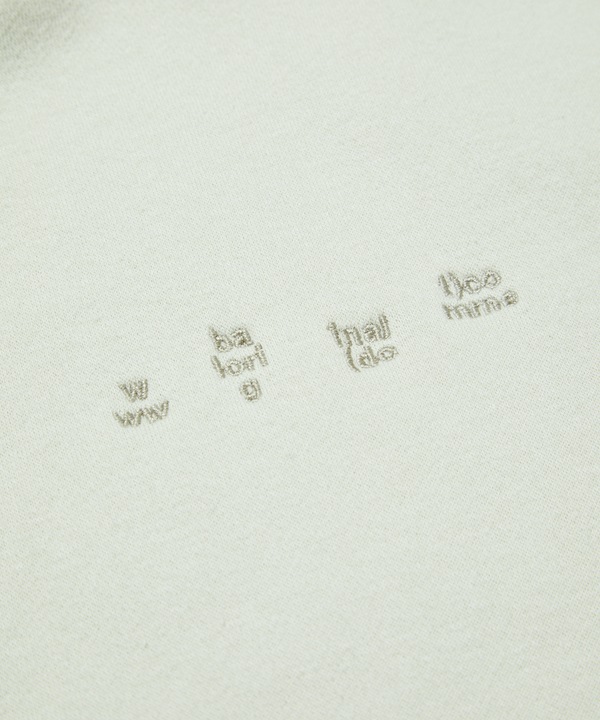 w
ww
ba
lorig
g
inal
(do
t)co
mme